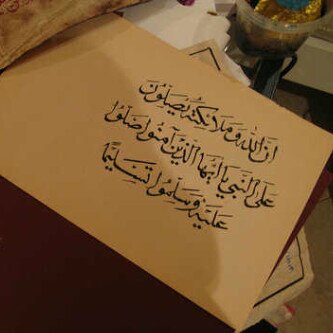 ان الله وملائكته يصلون
على النبي يا ايها الذين آمنوا صلوا
عليه وسلموا تسليما